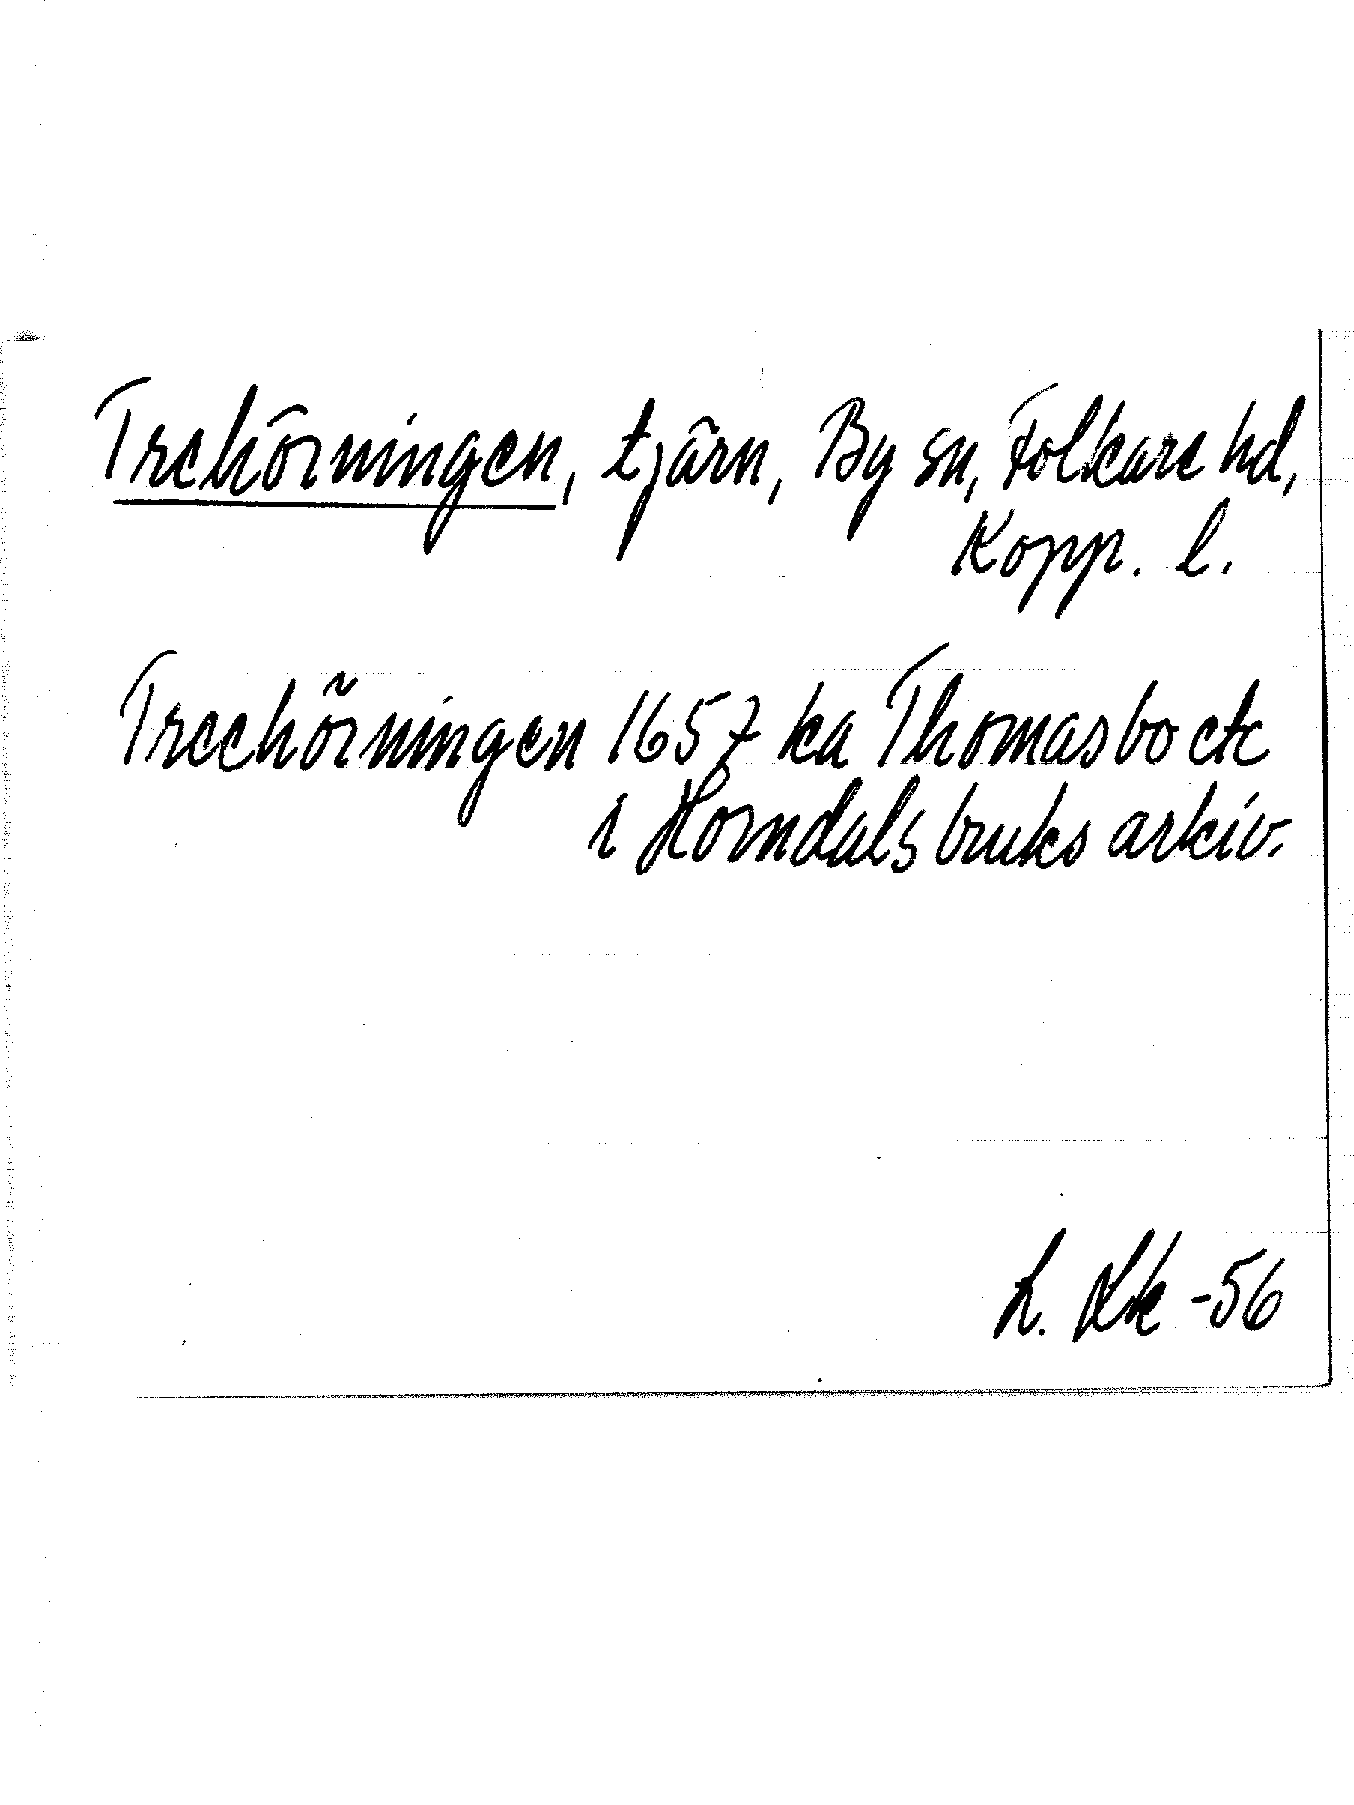 Trehörningen, tjärn, By sn, Folkare hd,
Kopp. l.
Treehörningen 1657 ka Thomasbo etc
i Horndals bruks arkiv.
L. Lk -56